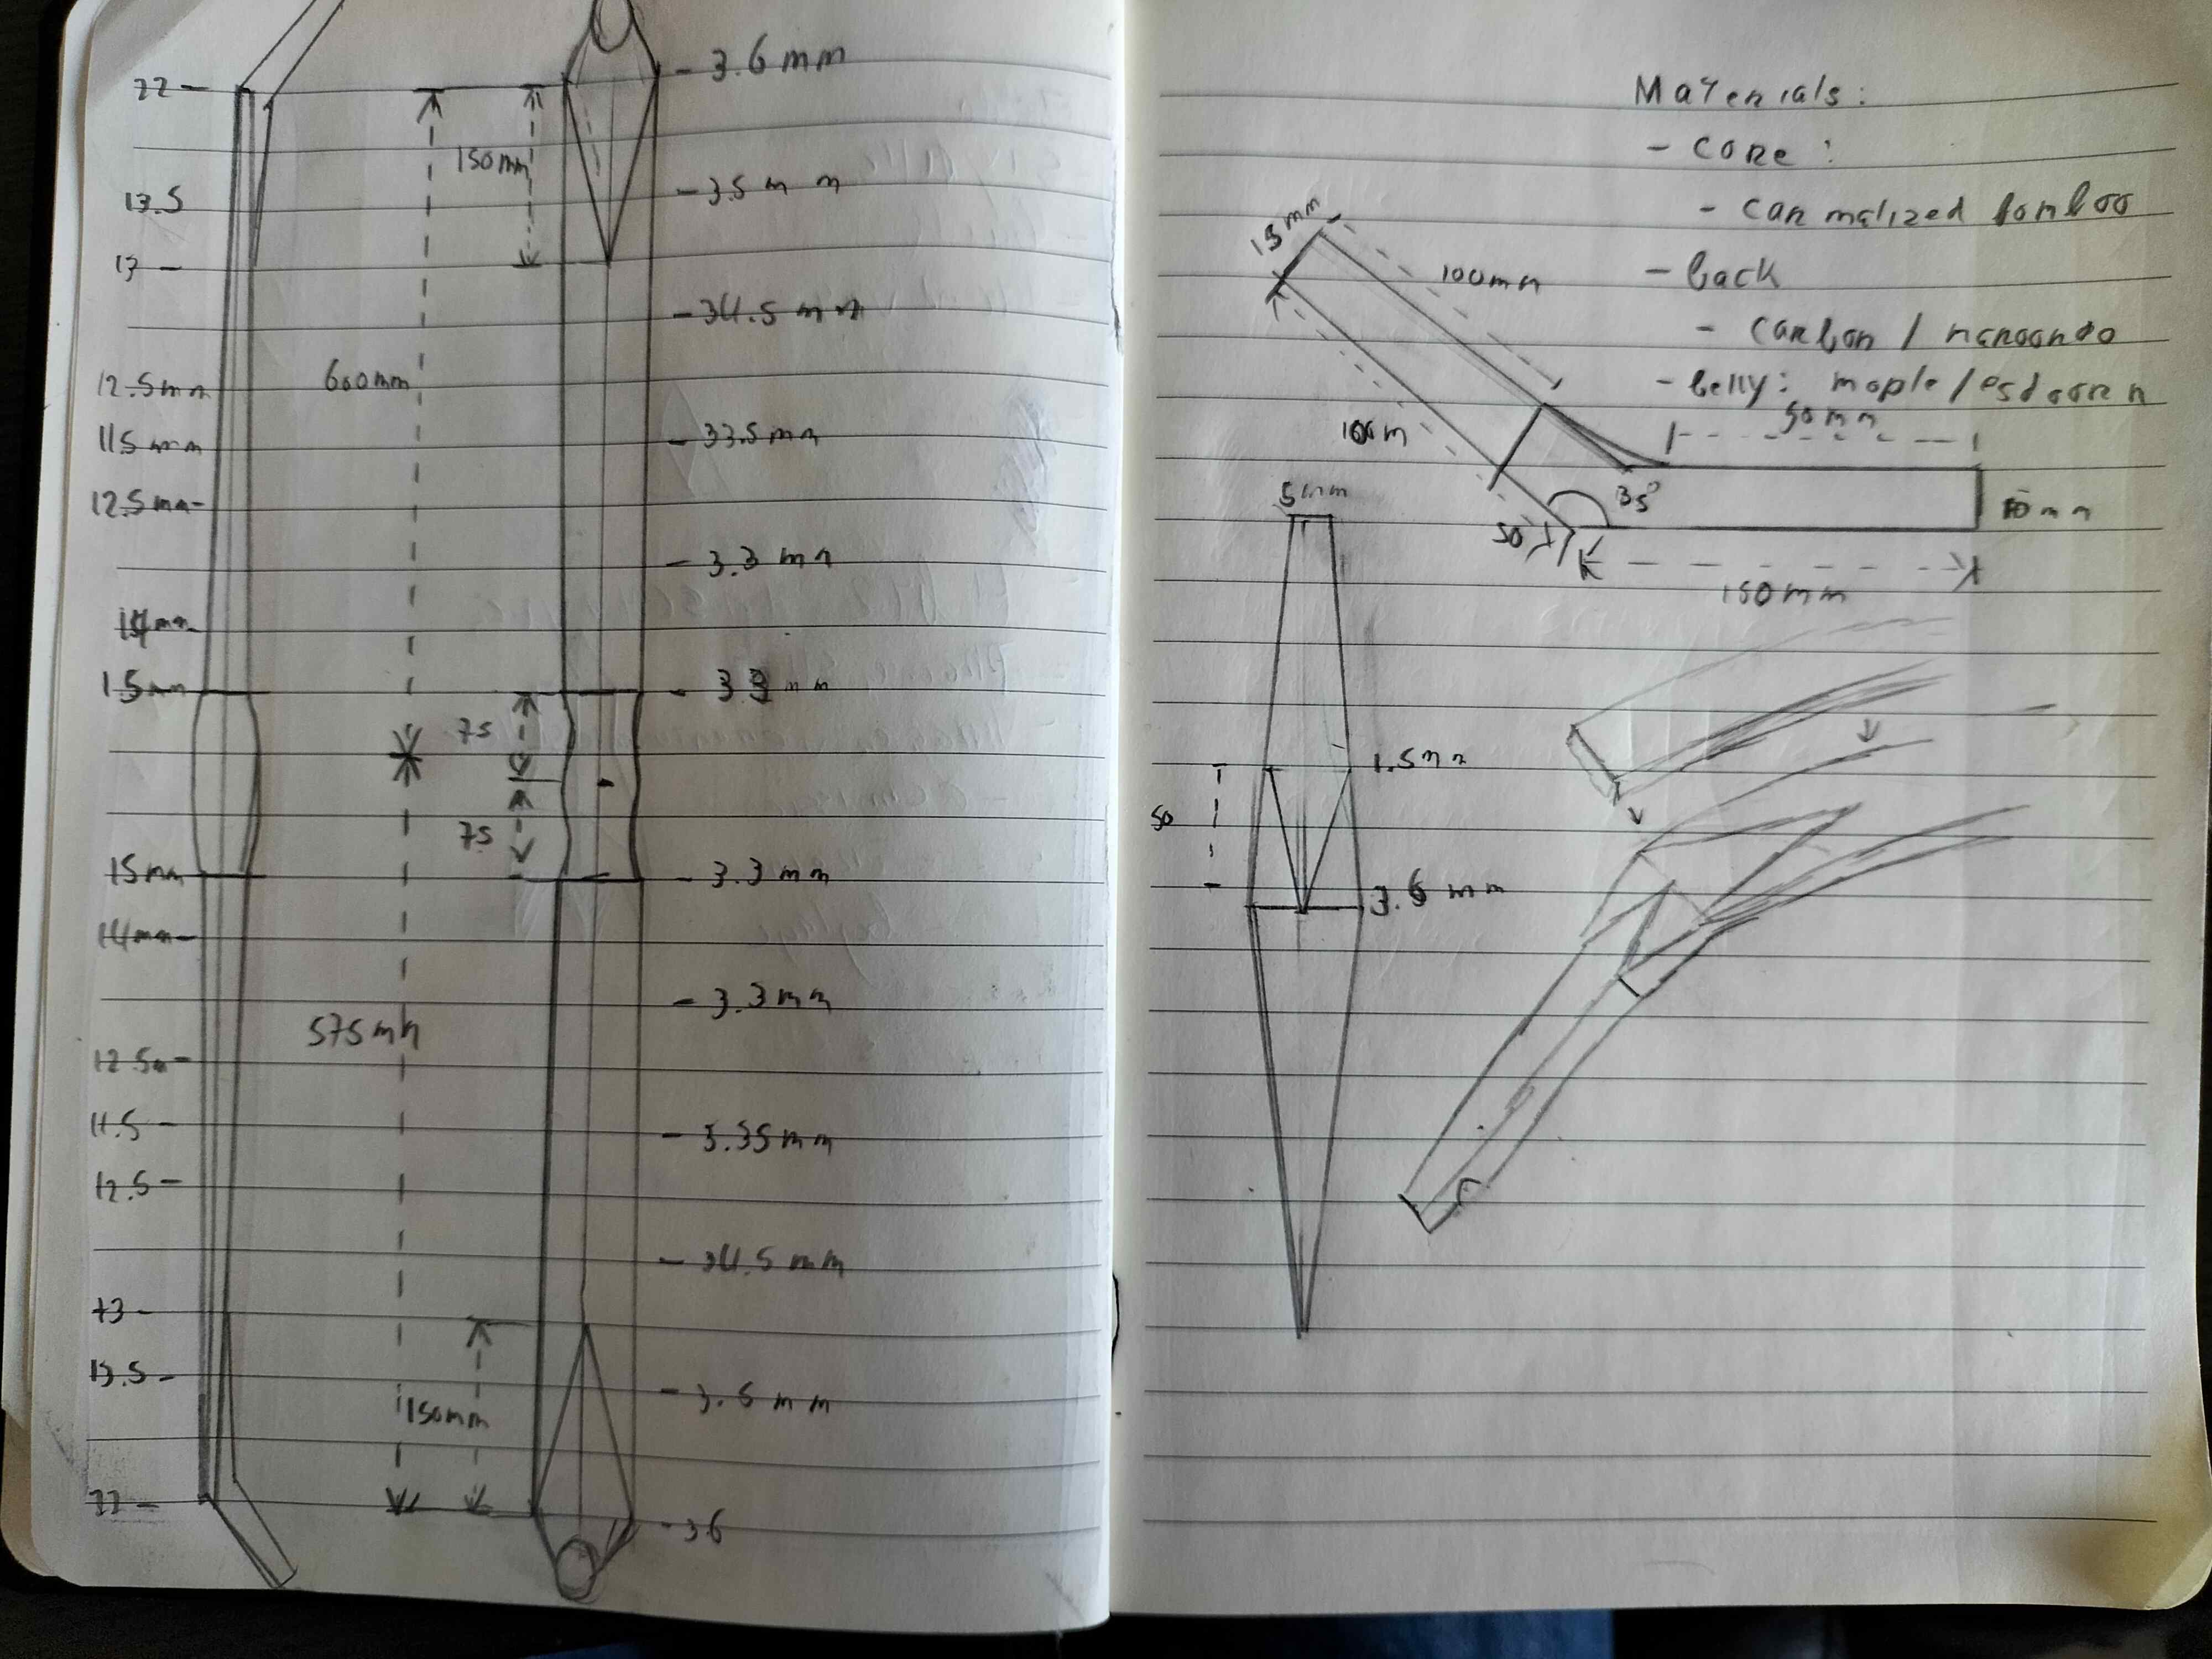 22 -
13.5
13 -
12.5mm
11.5mm
12.5mm-
14mm
15mm
15mm
14mm-
12.5m-
11.5 -
12.5 -
13 -
13.5 -
22 -
600mm
575mm
150mm
75
75
150mm
- 3.6 mm
- 3.5 mm
- 34.5 mm
- 33.5mm
- 3.3 mm
- 33 mm
- 3.3 mm
- 3.3mm
- 3.35mm
- 34.5 mm
- 3.6 mm
- 36
Materials:
- core:
- carmalized bamboo
- back
- carbon /
- belly: maple/esdoorn
15mm
100mm
100m
50mm
35°
10mm
50
150mm
5mm
1.5mm
50
3.6 mm